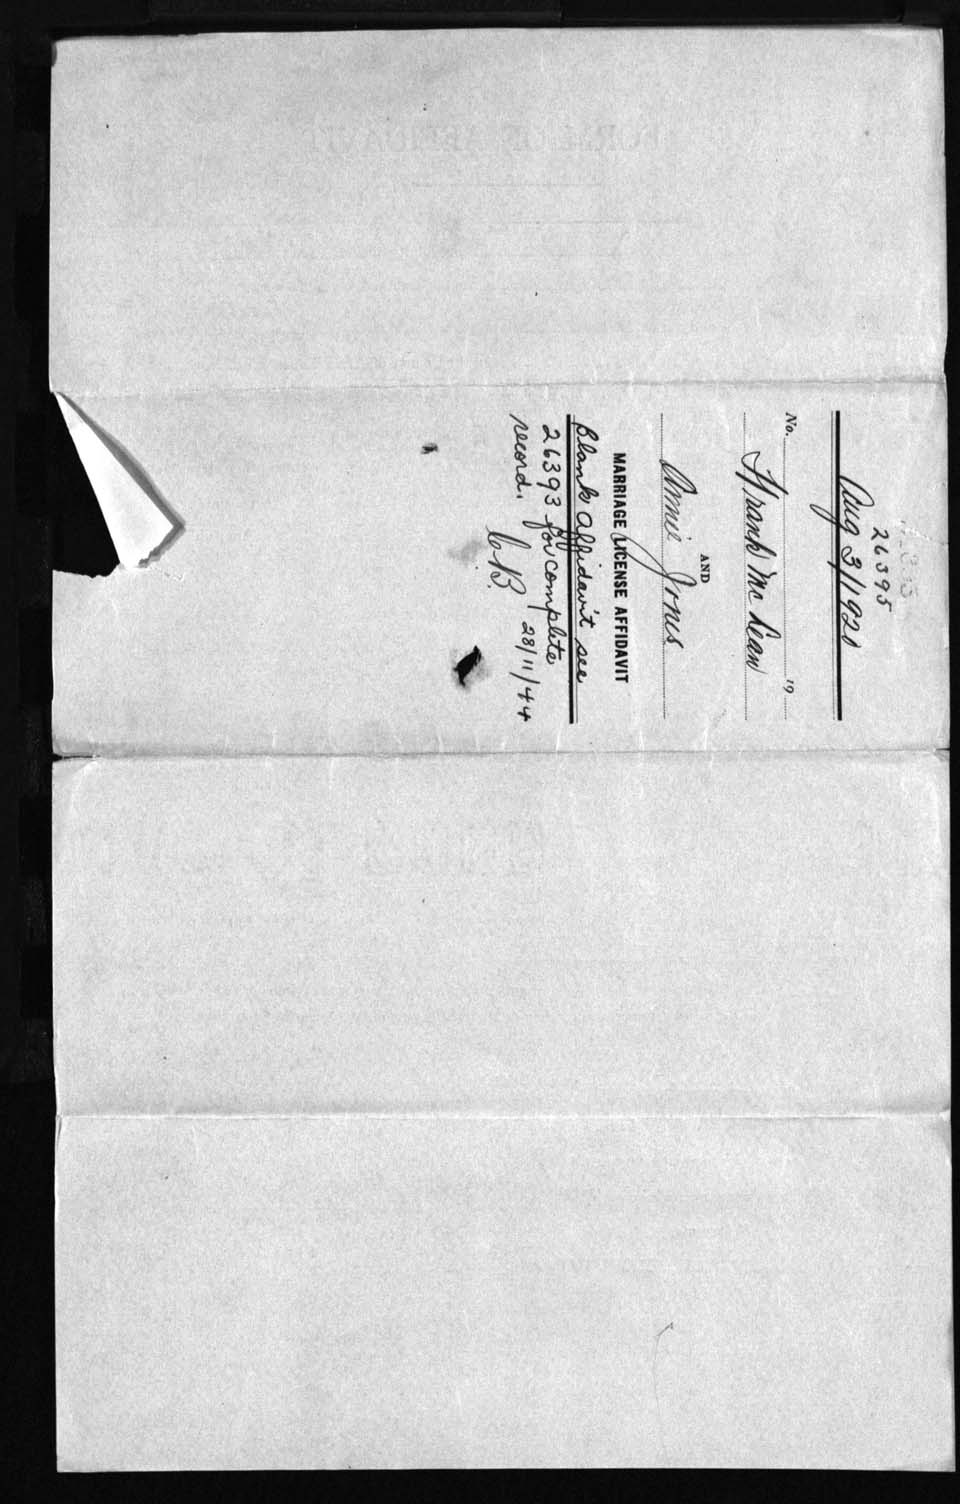 26395
Aug 3/1920
No. 19
Frank McLean
AND
Annie Jones
MARRIAGE LICENSE AFFIDAVIT
Blank affidavit see
26393 for complete
record.
CB. 28/11/44